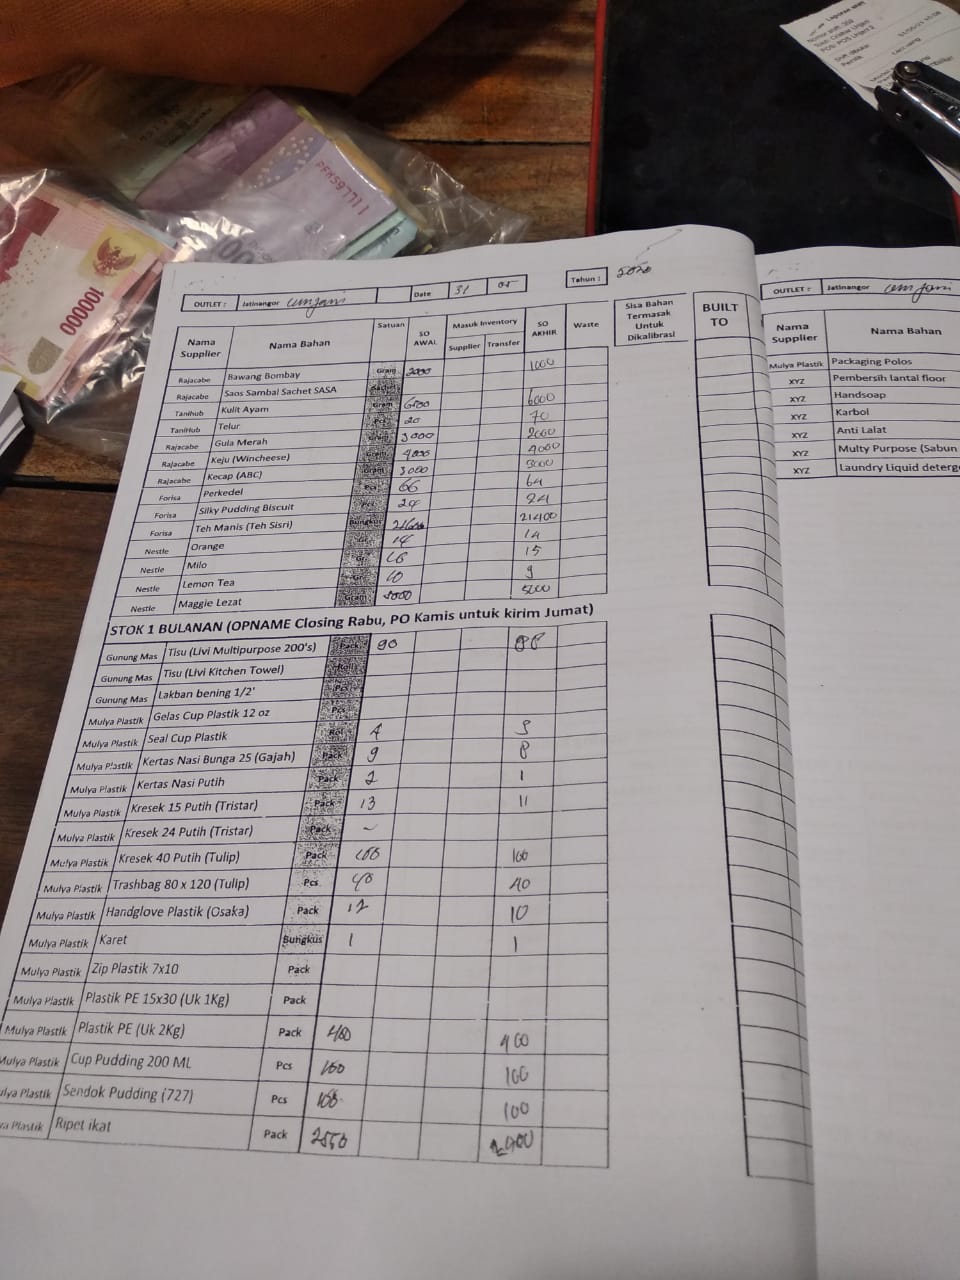 Laporan shift
100000
100
PFK597711
OUTLET : Jatinangor unjani Date 31 05 Tahun :
Nama Supplier Nama Bahan Satuan SO AWAL Masuk Inventory Supplier Transfer SO AKHIR Waste Sisa Bahan Termasuk Untuk Dikalibrasi BUILT TO
Rajacabe Bawang Bombay Gram 2000 1000
Rajacabe Saos Sambal Sachet SASA Sachet
Tanihub Kulit Ayam Gram 6000
TaniHub Telur 20 70
Rajacabe Gula Merah Gram 3000 2000
Rajacabe Keju (Wincheese) Gram 4000 4000
Rajacabe Kecap (ABC) Gram 3000 3000
Forisa Perkedel Pcs 66 64
Forisa Silky Pudding Biscuit Pcs 24 24
Forisa Teh Manis (Teh Sisri) Bungkus 21400
Nestle Orange Gr 14 14
Nestle Milo Gr 16 15
Nestle Lemon Tea Gr 10 9
Nestle Maggie Lezat Gram 5000 5000
STOK 1 BULANAN (OPNAME Closing Rabu, PO Kamis untuk kirim Jumat)
Gunung Mas Tisu (Livi Multipurpose 200's) Pack 90 88
Gunung Mas Tisu (Livi Kitchen Towel) Roll
Gunung Mas Lakban bening 1/2' Pcs
Mulya Plastik Gelas Cup Plastik 12 oz Pcs
Mulya Plastik Seal Cup Plastik Rol 4 3
Mulya Plastik Kertas Nasi Bunga 25 (Gajah) Pack 9 8
Mulya Plastik Kertas Nasi Putih Pack 2 1
Mulya Plastik Kresek 15 Putih (Tristar) Pack 13 11
Mulya Plastik Kresek 24 Putih (Tristar) Pack ~
Mulya Plastik Kresek 40 Putih (Tulip) Pack 100 100
Mulya Plastik Trashbag 80 x 120 (Tulip) Pcs 40 40
Mulya Plastik Handglove Plastik (Osaka) Pack 12 10
Mulya Plastik Karet Bungkus 1 1
Mulya Plastik Zip Plastik 7x10 Pack
Mulya Plastik Plastik PE 15x30 (Uk 1Kg) Pack
Mulya Plastik Plastik PE (Uk 2Kg) Pack 400 400
Mulya Plastik Cup Pudding 200 ML Pcs 100 100
lya Plastik Sendok Pudding (727) Pcs 100 100
a Plastik Ripet ikat Pack
OUTLET : Jatinangor unjani
Nama Supplier Nama Bahan
Mulya Plastik Packaging Polos
XYZ Pembersih lantai floor
XYZ Handsoap
XYZ Karbol
XYZ Anti Lalat
XYZ Multy Purpose (Sabun
XYZ Laundry Liquid deterge